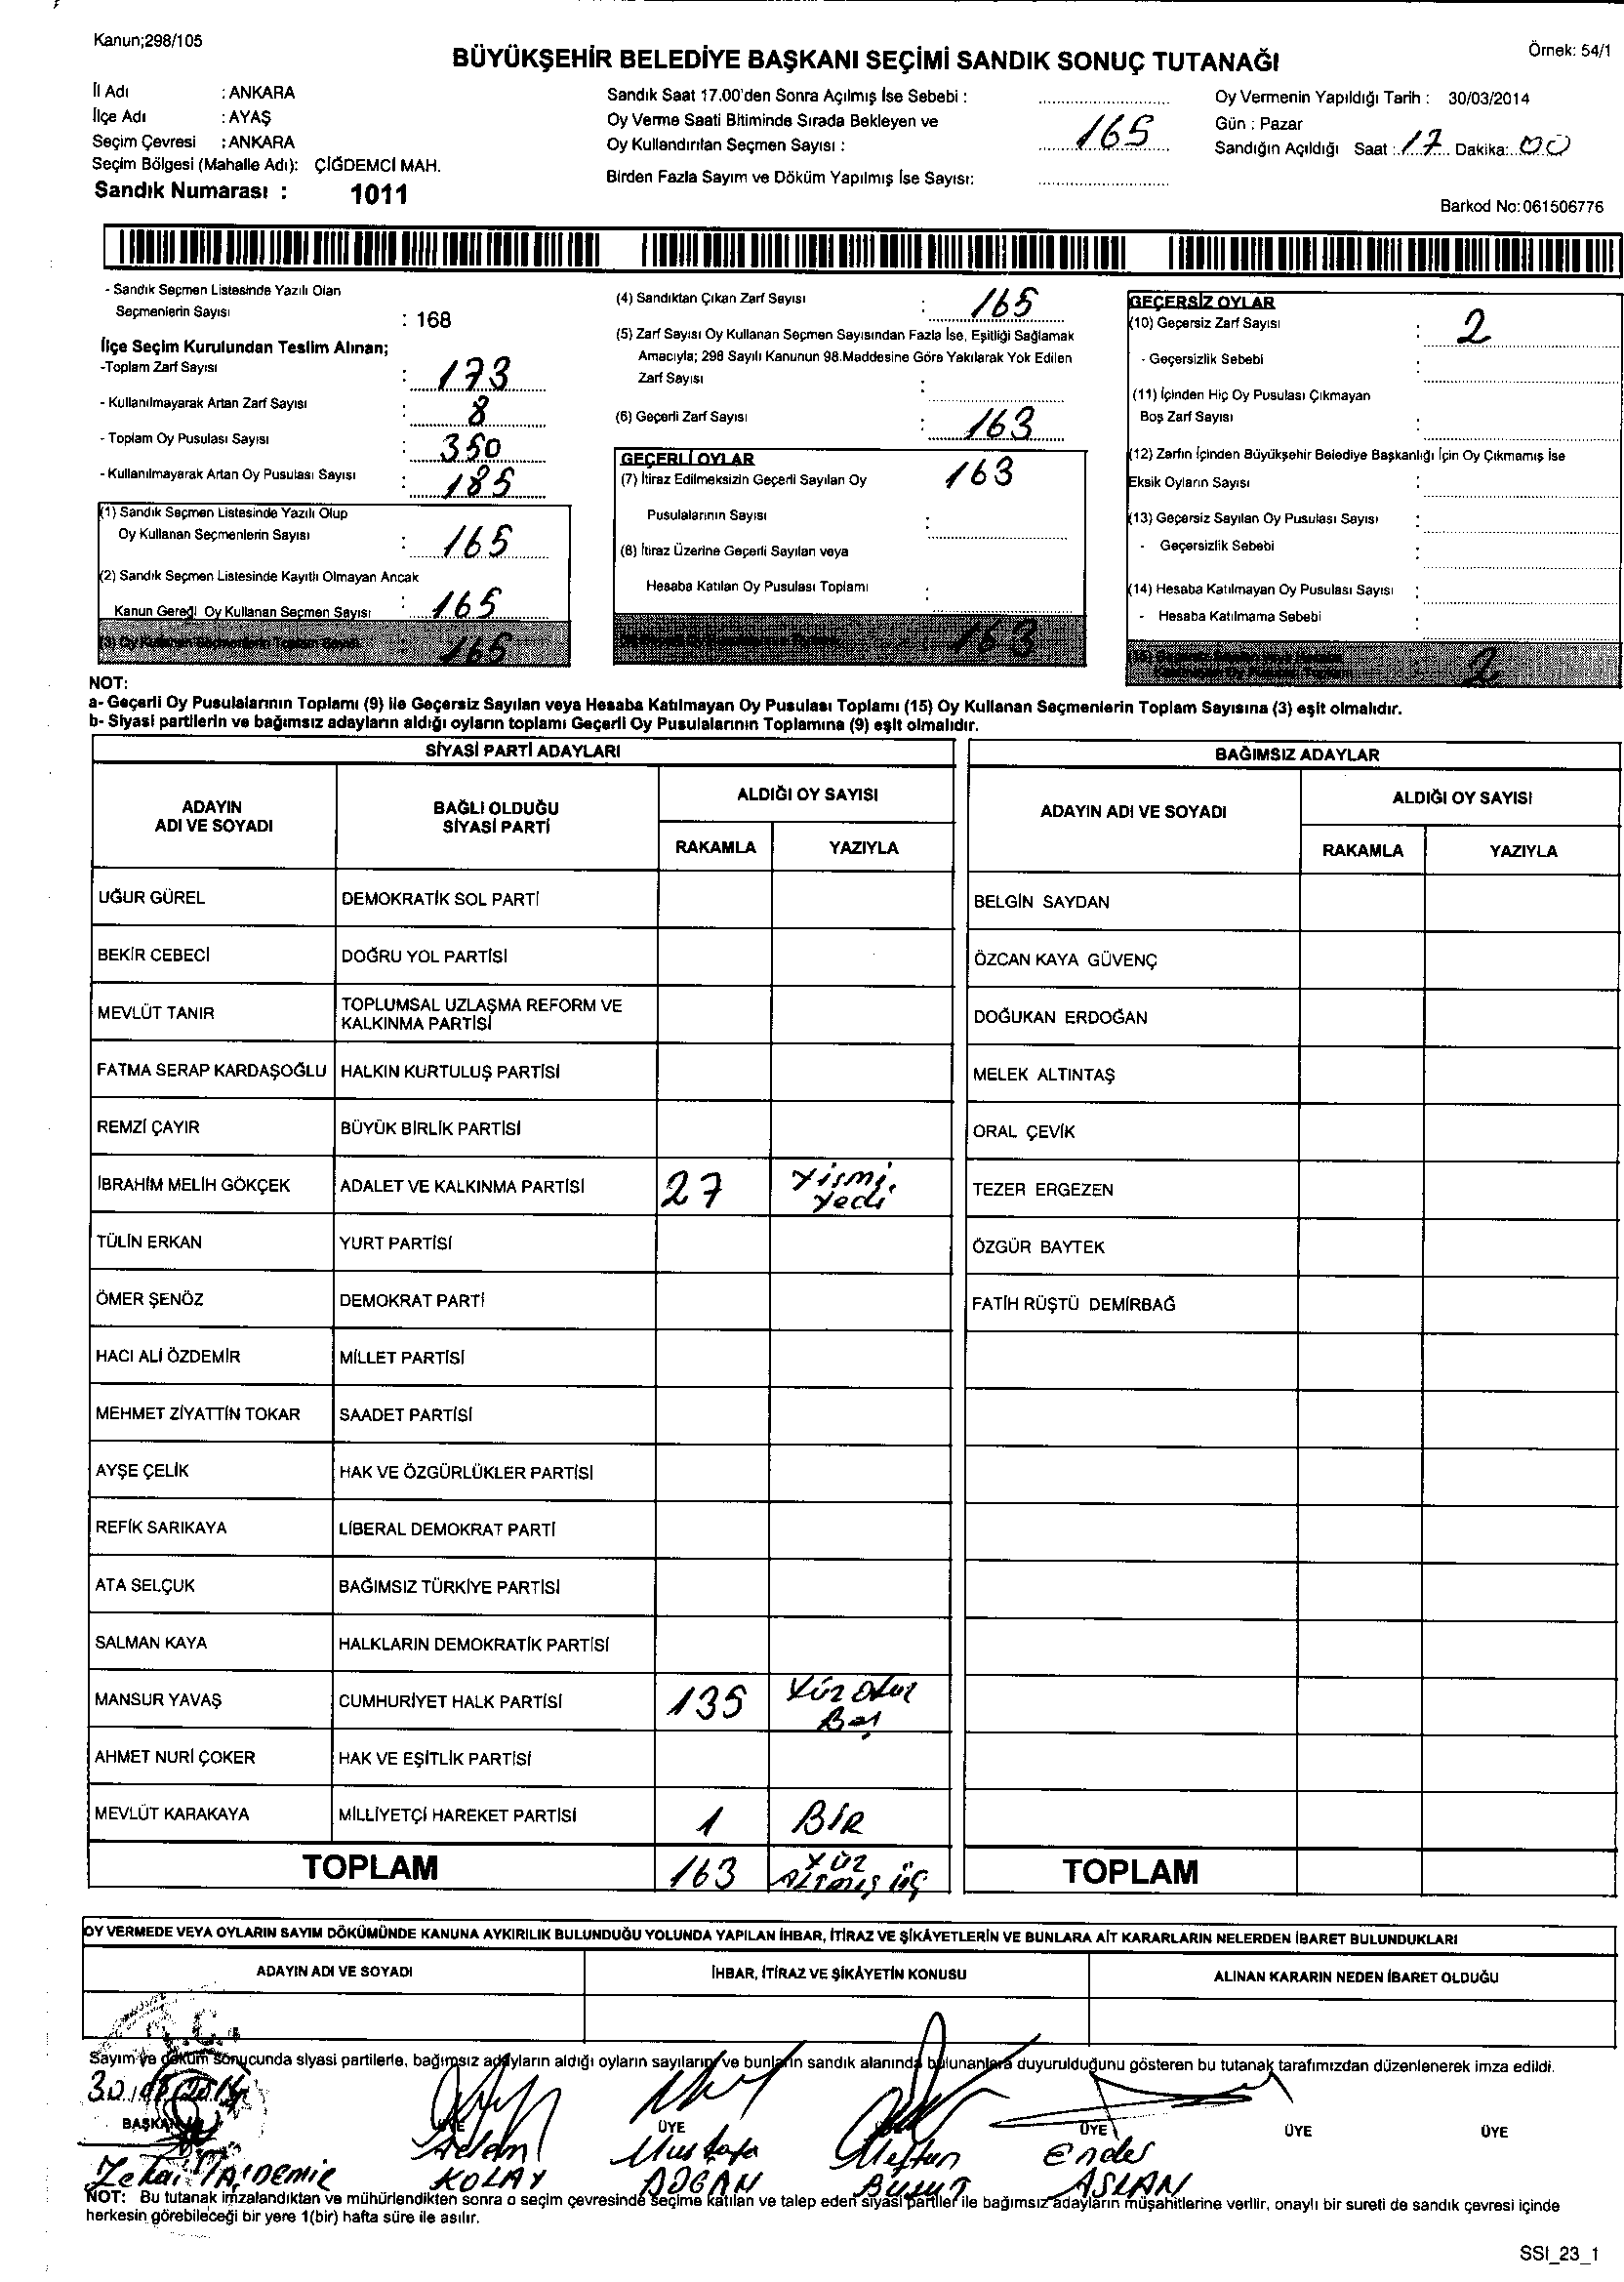 Kanun;298/105
Örnek: 54/1
BÜYÜKŞEHİR BELEDİYE BAŞKANI SEÇİMİ SANDIK SONUÇ TUTANAĞI
İl Adı : ANKARA
İlçe Adı : AYAŞ
Seçim Çevresi : ANKARA
Seçim Bölgesi (Mahalle Adı): ÇİĞDEMCİ MAH.
Sandık Numarası : 1011
Sandık Saat 17.00'den Sonra Açılmış İse Sebebi :
Oy Verme Saati Bitiminde Sırada Bekleyen ve
Oy Kullandırılan Seçmen Sayısı : 165
Birden Fazla Sayım ve Döküm Yapılmış İse Sayısı:
Oy Vermenin Yapıldığı Tarih : 30/03/2014
Gün : Pazar
Sandığın Açıldığı Saat : 17 Dakika: 00
Barkod No: 061506776
- Sandık Seçmen Listesinde Yazılı Olan
Seçmenlerin Sayısı : 168
İlçe Seçim Kurulundan Teslim Alınan;
-Toplam Zarf Sayısı : 173
- Kullanılmayarak Artan Zarf Sayısı : 8
- Toplam Oy Pusulası Sayısı : 350
- Kullanılmayarak Artan Oy Pusulası Sayısı : 185
(1) Sandık Seçmen Listesinde Yazılı Olup
Oy Kullanan Seçmenlerin Sayısı : 165
(2) Sandık Seçmen Listesinde Kayıtlı Olmayan Ancak
Kanun Gereği Oy Kullanan Seçmen Sayısı : 165
(3) Oy Kullanan Seçmenlerin Toplam Sayısı : 165
(4) Sandıktan Çıkan Zarf Sayısı : 165
(5) Zarf Sayısı Oy Kullanan Seçmen Sayısından Fazla İse, Eşitliği Sağlamak
Amacıyla; 298 Sayılı Kanunun 98.Maddesine Göre Yakılarak Yok Edilen
Zarf Sayısı :
(6) Geçerli Zarf Sayısı : 163
GEÇERLİ OYLAR
(7) İtiraz Edilmeksizin Geçerli Sayılan Oy 163
Pusulalarının Sayısı :
(8) İtiraz Üzerine Geçerli Sayılan veya
Hesaba Katılan Oy Pusulası Toplamı :
163
GEÇERSİZ OYLAR
(10) Geçersiz Zarf Sayısı : 2
- Geçersizlik Sebebi :
(11) İçinden Hiç Oy Pusulası Çıkmayan
Boş Zarf Sayısı :
(12) Zarfın İçinden Büyükşehir Belediye Başkanlığı İçin Oy Çıkmamış İse
Eksik Oyların Sayısı :
(13) Geçersiz Sayılan Oy Pusulası Sayısı :
- Geçersizlik Sebebi :
(14) Hesaba Katılmayan Oy Pusulası Sayısı :
- Hesaba Katılmama Sebebi :
2
NOT:
a- Geçerli Oy Pusulalarının Toplamı (9) ile Geçersiz Sayılan veya Hesaba Katılmayan Oy Pusulası Toplamı (15) Oy Kullanan Seçmenlerin Toplam Sayısına (3) eşit olmalıdır.
b- Siyasi partilerin ve bağımsız adayların aldığı oyların toplamı Geçerli Oy Pusulalarının Toplamına (9) eşit olmalıdır.
SİYASİ PARTİ ADAYLARI
ADAYIN
ADI VE SOYADI
BAĞLI OLDUĞU
SİYASİ PARTİ
ALDIĞI OY SAYISI
RAKAMLA YAZIYLA
UĞUR GÜREL DEMOKRATİK SOL PARTİ
BEKİR CEBECİ DOĞRU YOL PARTİSİ
MEVLÜT TANIR TOPLUMSAL UZLAŞMA REFORM VE
KALKINMA PARTİSİ
FATMA SERAP KARDAŞOĞLU HALKIN KURTULUŞ PARTİSİ
REMZİ ÇAYIR BÜYÜK BİRLİK PARTİSİ
İBRAHİM MELİH GÖKÇEK ADALET VE KALKINMA PARTİSİ 27 Yirmi
Yedi
TÜLİN ERKAN YURT PARTİSİ
ÖMER ŞENÖZ DEMOKRAT PARTİ
HACI ALİ ÖZDEMİR MİLLET PARTİSİ
MEHMET ZİYATTİN TOKAR SAADET PARTİSİ
AYŞE ÇELİK HAK VE ÖZGÜRLÜKLER PARTİSİ
REFİK SARIKAYA LİBERAL DEMOKRAT PARTİ
ATA SELÇUK BAĞIMSIZ TÜRKİYE PARTİSİ
SALMAN KAYA HALKLARIN DEMOKRATİK PARTİSİ
MANSUR YAVAŞ CUMHURİYET HALK PARTİSİ 135 Yüz Otuz
Beş
AHMET NURİ ÇOKER HAK VE EŞİTLİK PARTİSİ
MEVLÜT KARAKAYA MİLLİYETÇİ HAREKET PARTİSİ 1 BİR
TOPLAM 163 YÜZ
ALTMIŞ ÜÇ
BAĞIMSIZ ADAYLAR
ADAYIN ADI VE SOYADI
ALDIĞI OY SAYISI
RAKAMLA YAZIYLA
BELGİN SAYDAN
ÖZCAN KAYA GÜVENÇ
DOĞUKAN ERDOĞAN
MELEK ALTINTAŞ
ORAL ÇEVİK
TEZER ERGEZEN
ÖZGÜR BAYTEK
FATİH RÜŞTÜ DEMİRBAĞ
TOPLAM
OY VERMEDE VEYA OYLARIN SAYIM DÖKÜMÜNDE KANUNA AYKIRILIK BULUNDUĞU YOLUNDA YAPILAN İHBAR, İTİRAZ VE ŞİKÂYETLERİN VE BUNLARA AİT KARARLARIN NELERDEN İBARET BULUNDUKLARI
ADAYIN ADI VE SOYADI İHBAR, İTİRAZ VE ŞİKÂYETİN KONUSU ALINAN KARARIN NEDEN İBARET OLDUĞU
T.C.
Sayım ve döküm sonucunda siyasi partilerle, bağımsız adayların aldığı oyların sayıların ve bunların sandık alanında bulunanlara duyurulduğunu gösteren bu tutanak tarafımızdan düzenlenerek imza edildi.
BAŞKAN ÜYE ÜYE ÜYE ÜYE ÜYE
Adem Mustafa Meftun Ender
Zekai KOLAY BULUT ASLAN
NOT: Bu tutanak imzalandıktan ve mühürlendikten sonra o seçim çevresinde seçime katılan ve talep eden siyasi partiler ile bağımsız adayların müşahitlerine verilir, onaylı bir sureti de sandık çevresi içinde
herkesin görebileceği bir yere 1(bir) hafta süre ile asılır.
SSI_23_1